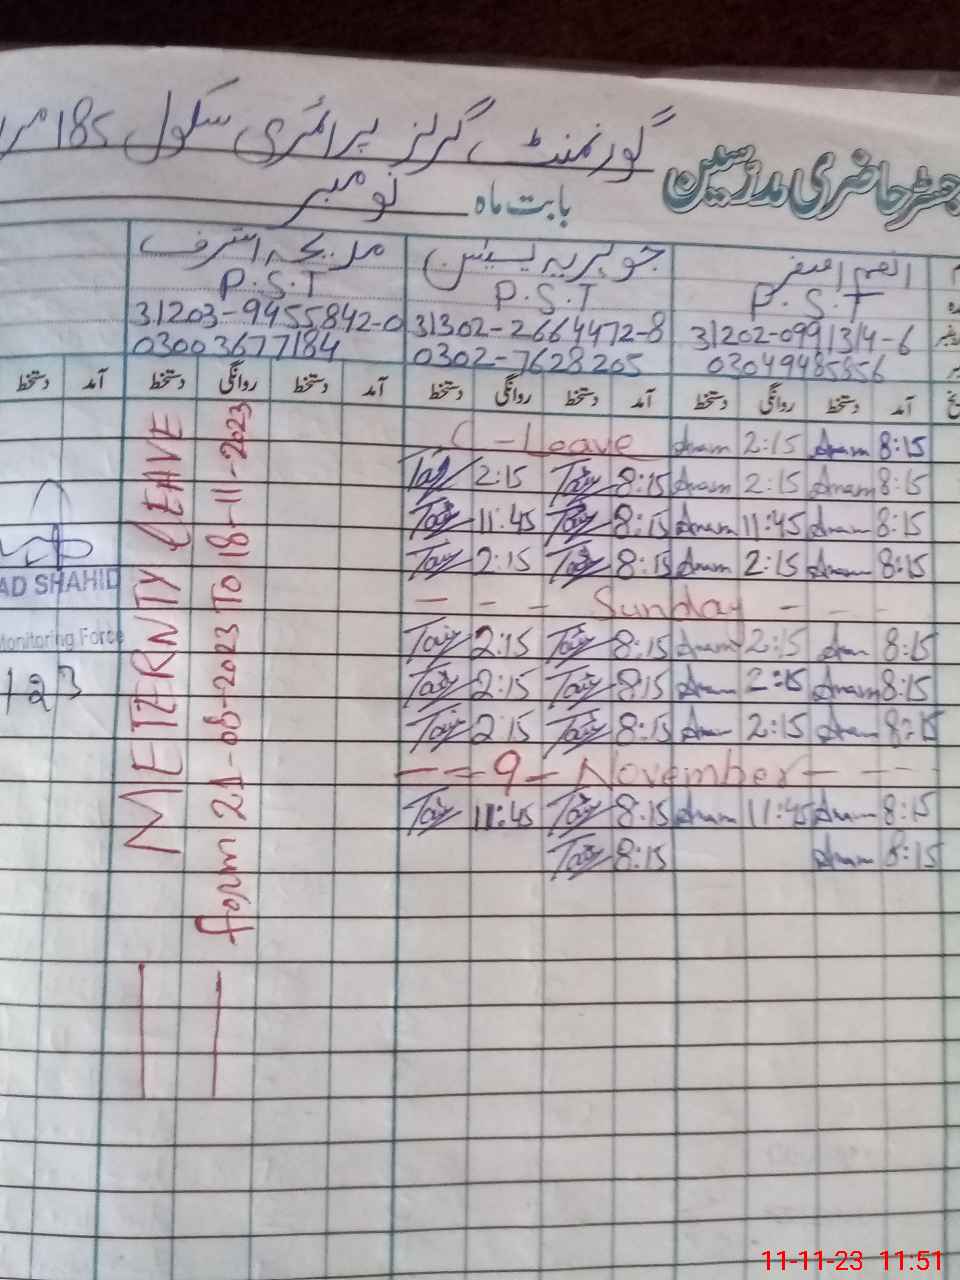 گورنمنٹ گرلز پرائمری سکول 185 مراد
رجسٹر حاضری مدرسین
بابت ماہ نومبر
انعم اصغر جویریہ یسین مدیحہ اشرف
P.S.T P.S.T P.S.T
31202-0991314-6 31302-2664472-8 31203-9455842-0
03049485856 0302-7628205 03003677184
آمد دستخط روانگی دستخط آمد دستخط روانگی دستخط آمد دستخط روانگی دستخط آمد دستخط
8:15 Anam 2:15 Anam C-Leave
8:15 Anam 2:15 Anam 8:15 2:15
8:15 Anam 11:45 Anam 8:15 11:45
8:15 Anam 2:15 Anam 8:15 2:15
- - - Sunday - - -
8:15 Anam 2:15 Anam 8:15 2:15
8:15 Anam 2:15 Anam 8:15 2:15
8:15 Anam 2:15 Anam 8:15 2:15
- - - 9 - November - - - -
8:15 Anam 11:45 Anam 8:15 11:45
8:15 Anam 8:15
METERNTY LEAVE
form 21-08-2023 To 18-11-2023
AD SHAHID
Monitoring Force
123
11-11-23 11:51